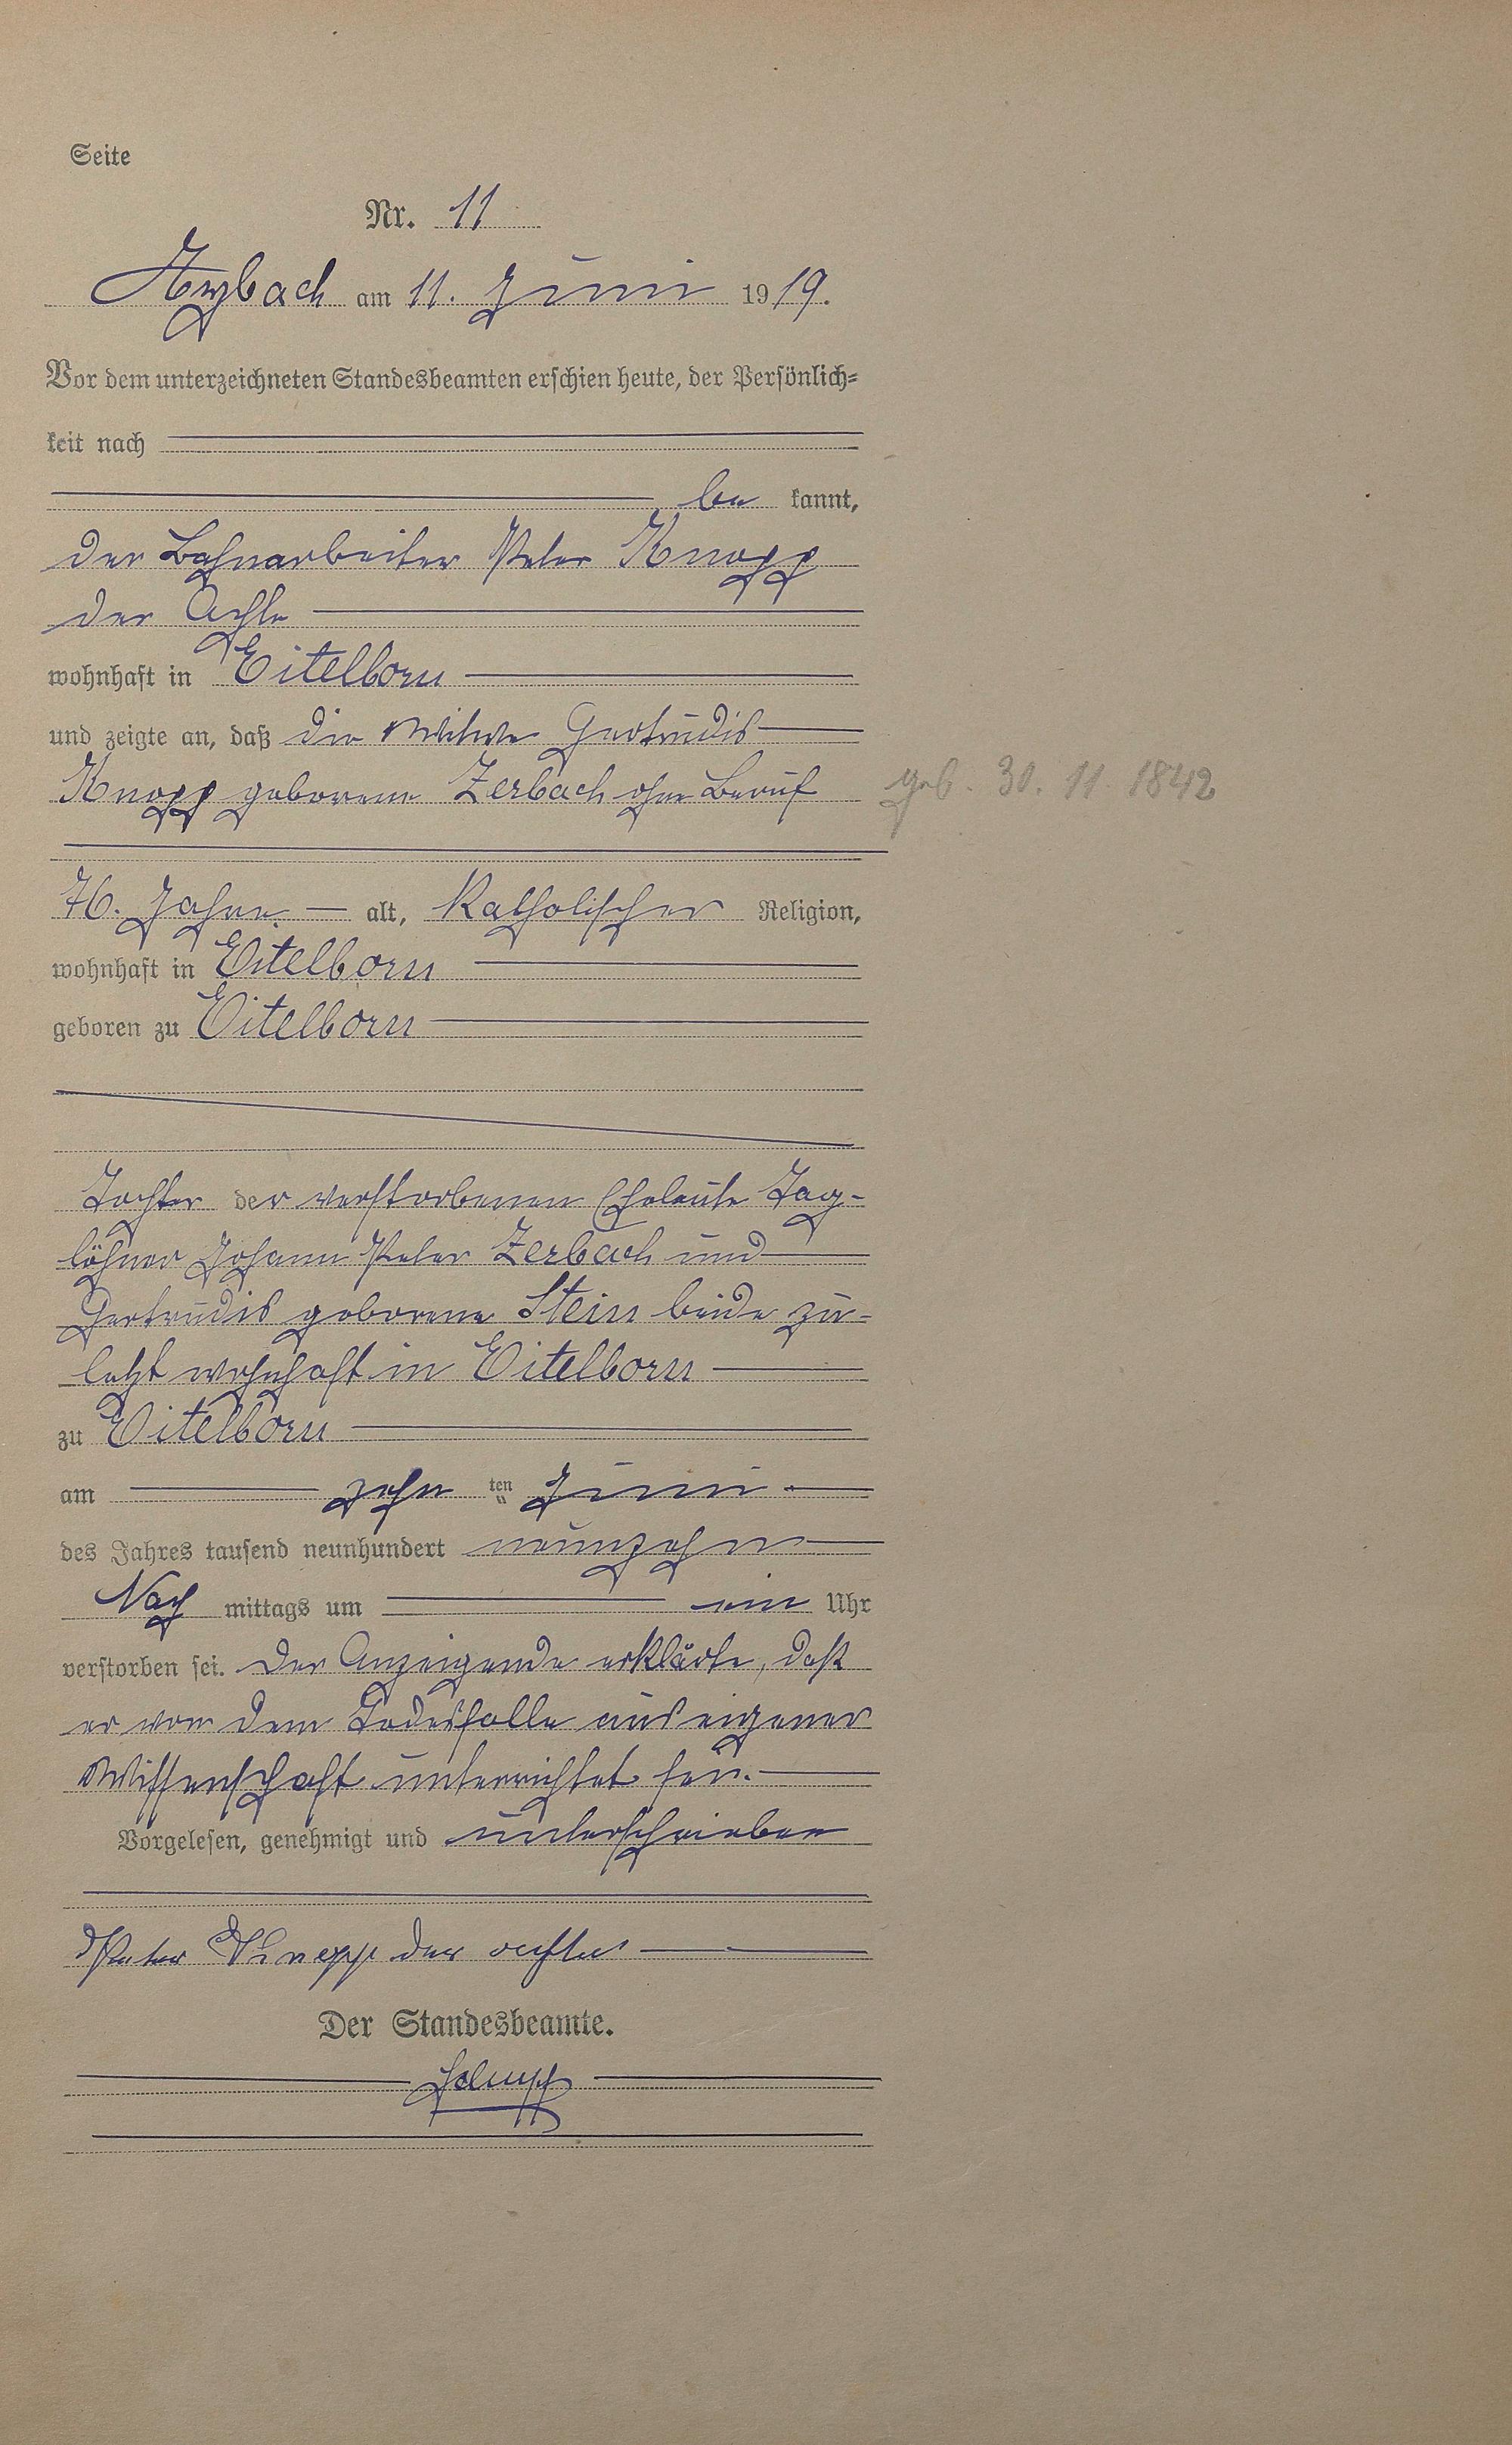 Seite
Nr. 11
Arzbach am 11. Juni 1919.
Vor dem unterzeichneten Standesbeamten erschien heute, der Persönlich=
keit nach
be kannt,
der Bahnarbeiter Peter Knopp
der Achte
wohnhaft in Eitelborn
und zeigte an, daß die Witwe Gertrudis
Knopp geborene Zerbach ohne Beruf
geb. 30. 11. 1842
76. Jahre alt, Katholischer Religion,
wohnhaft in Eitelborn
geboren zu Eitelborn
Tochter der verstorbenen Eheleute Tag-
löhner Johann Peter Zerbach und
Gertrudis geborene Stein beide zu-
letzt wohnhaft in Eitelborn
zu Eitelborn
am zehn ten Juni
des Jahres tausend neunhundert neunzehn
Nach mittags um ein Uhr
verstorben sei. Der Anzeigende erklärte, daß
er von dem Todesfalle aus eigener
Wissenschaft unterrichtet sei.
Vorgelesen, genehmigt und unterschrieben
Peter Knopp der achte
Der Standesbeamte.